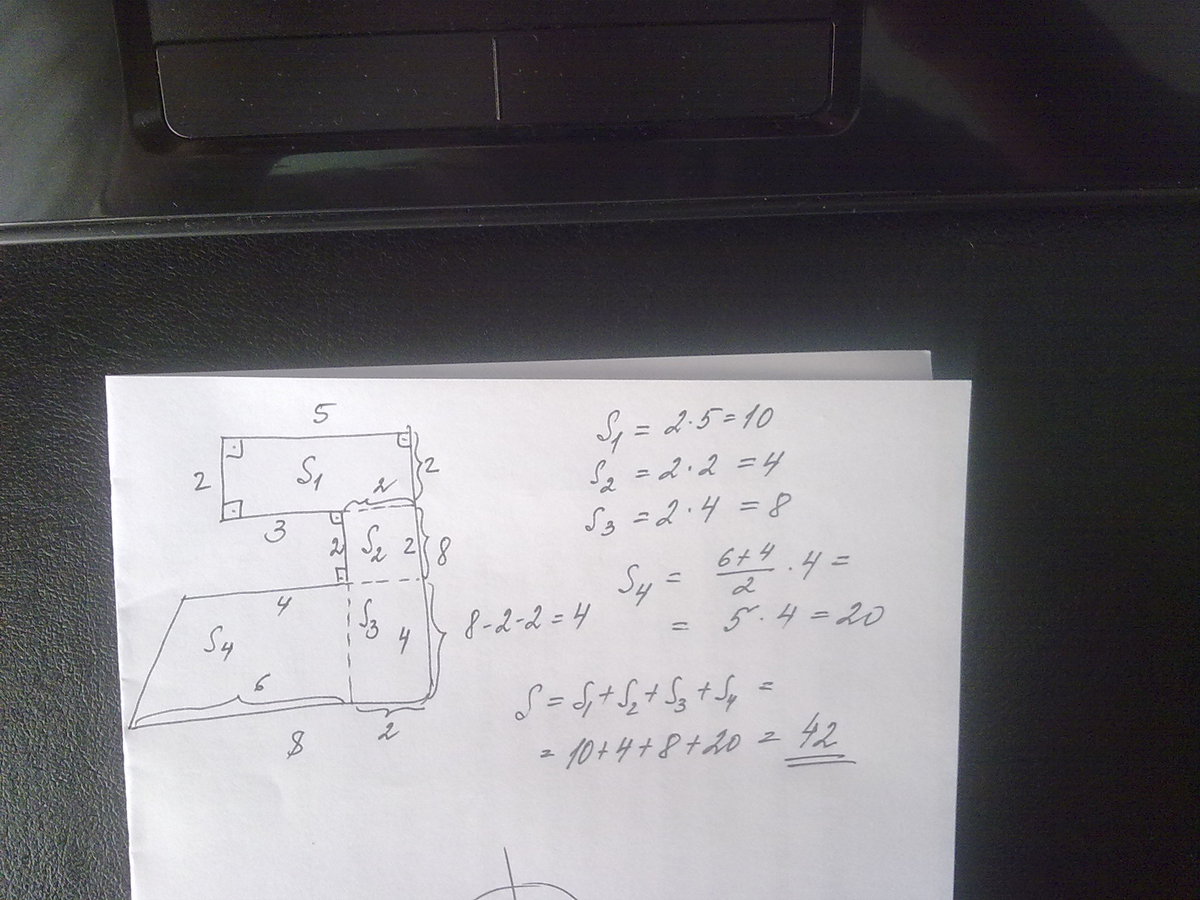 5
2
S₁
2
2
3
2
S₂
2
8
4
S₃
S₄
4
6
2
8
8-2-2=4
S₁ = 2·5=10
S₂ = 2·2 =4
S₃ =2·4 =8
S₄ = (6+4)/2 ·4=
= 5·4=20
S=S₁+S₂+S₃+S₄ =
= 10+4+8+20 = 42